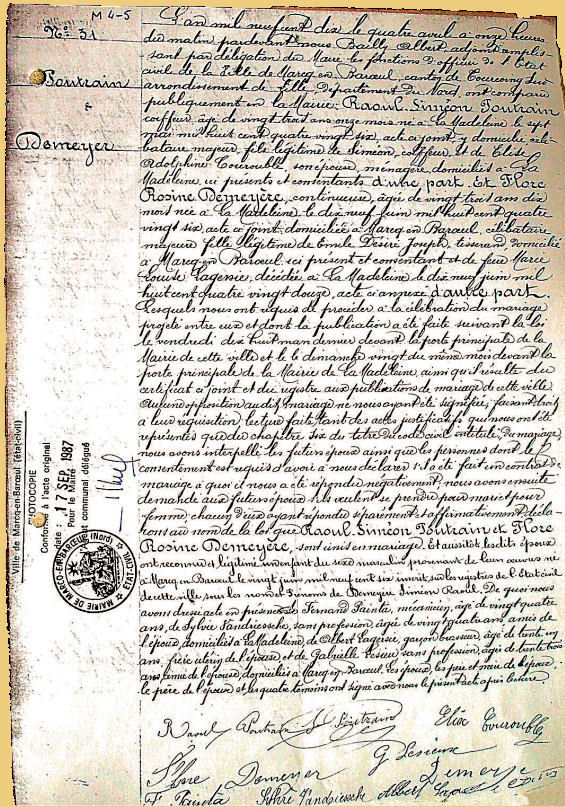 M 4-5
N° 31
Poutrain
&
Demeyer
L'an mil neuf cent dix le quatre avril à onze heures
du matin pardevant nous Bailly Albert, adjoint remplis-
sant par délégation du Maire les fonctions d'officier de l'Etat
civil de la Ville de Marcq-en-Barœul, canton de Tourcoing Sud
arrondissement de Lille, Département du Nord, ont comparu
publiquement en la Mairie: Raoul Siméon Poutrain
coiffeur, âgé de vingt trois ans onze mois né à La Madeleine le sept
mai mil huit cent quatre vingt six, acte ci joint, y domicilié céli-
bataire majeur, fils légitime de Siméon, coiffeur, et de Elise
Adolphine Couroubly son épouse, ménagère, domiciliés à La
Madeleine, ici présents et consentants d'une part. Et Flore
Rosine Demeyère, continueuse, âgée de vingt trois ans dix
mois née à La Madeleine le dix neuf juin mil huit cent quatre
vingt six, acte ci joint, domiciliée à Marcq-en-Barœul, célibataire
majeure fille légitime de Emile Désiré Joseph, tisserand domicilié
à Marcq-en-Barœul ici présent et consentant et de feue Marie
Louise Lagersie, décédée à La Madeleine le dix neuf juin mil
huit cent quatre vingt douze, acte ci annexé d'autre part.
Lesquels nous ont requis de procéder à la célébration du mariage
projeté entre eux et dont la publication a été faite suivant la loi
le vendredi dix huit mars dernier devant la porte principale de la
Mairie de cette ville et le dimanche vingt du même mois devant la
porte principale de la Mairie de La Madeleine, ainsi qu'il résulte du
certificat ci joint et du registre aux publications de mariage de cette ville.
Aucune opposition audit mariage ne nous ayant été signifiée, faisant droit
à leur réquisition, lecture faite tant des actes justificatifs qui nous ont été
représentés que du chapitre six du titre du code civil intitulé, du mariage,
nous avons interpellé les futurs époux ainsi que les personnes dont le
consentement est requis d'avoir à nous déclarer s'il a été fait un contrat de
mariage à quoi il nous a été répondu négativement, nous avons ensuite
demandé aux futurs époux s'ils veulent se prendre pour mari et pour
femme, chacun d'eux ayant répondu séparément et affirmativement, décla-
rons au nom de la loi que Raoul Siméon Poutrain et Flore
Rosine Demeyère, sont unis en mariage. Et aussitôt lesdits époux
ont reconnu et légitimé un enfant du sexe masculin provenant de leurs œuvres né
à Marcq-en-Barœul le vingt juin mil neuf cent six inscrit sur les registres de l'état civil
de cette ville sous les noms et prénoms de Demeyère Siméon Raoul. De quoi nous
avons dressé acte en présence de Fernand Painta, mécanicien, âgé de vingt quatre
ans, de Sylvie Vandriessche, sans profession, âgée de vingt quatre ans amis de
l'époux, domiciliés à La Madeleine, de Albert Lagersie, garçon brasseur, âgé de trente un
ans, frère utérin de l'épouse, et de Gabrielle Lesieux sans profession, âgée de trente trois
ans, amie de l'épouse, domiciliés à Marcq-en-Barœul. Les époux, les père et mère de l'époux,
le père de l'épouse et les quatre témoins ont signé avec nous le présent acte après lecture.
Raoul Poutrain S. Poutrain Elise Couroubly
Flore Demeyer G Lesieux Demeyer
F. Painta Sylvie Vandriessche Albert
Ville de Marcq-en-Barœul (état-civil)
PHOTOCOPIE
Conforme à l'acte original
Date : 17 SEP. 1987
Pour le Maire
communal délégué
MAIRIE DE MARCQ-EN-BARŒUL (Nord)
ETAT-CIVIL